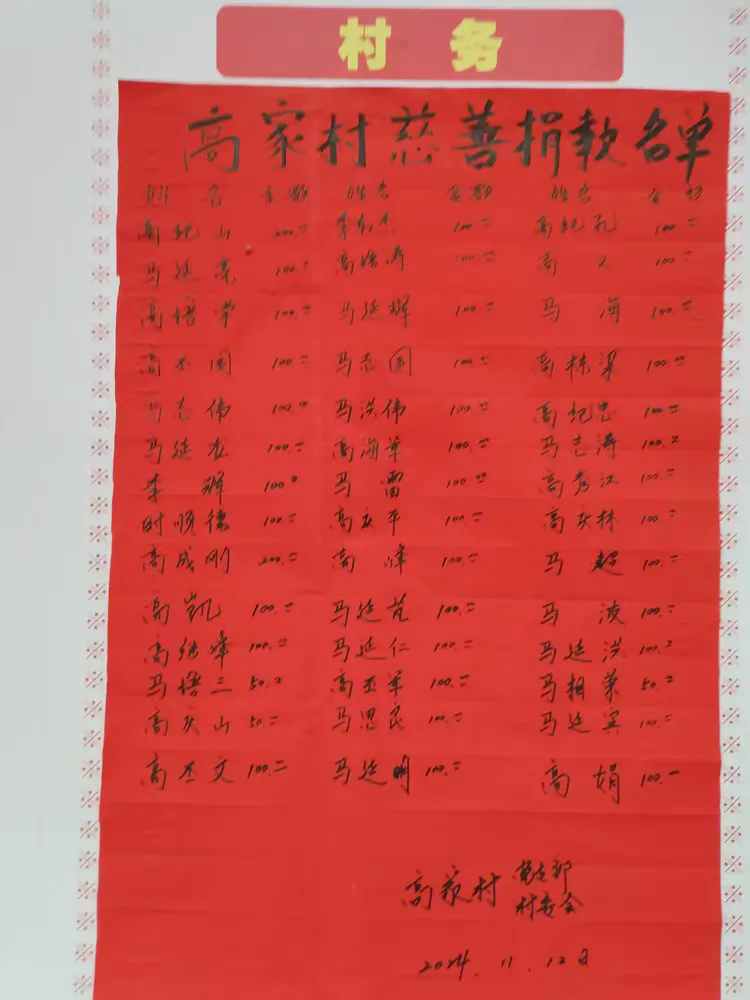 村务
高家村慈善捐款名单
姓名 金额 姓名 金额 姓名 金额
高纪山 200.= 100.= 高纪孔 100.=
马延亮 100.= 高培涛 100.= 高人 100.=
高培常 100.= 马延辉 100.= 马海 100.=
高丕国 100.= 马志国 100.= 高栋梁 100.=
马志伟 100.= 马洪伟 100.= 高纪忠 100.=
马延龙 100.= 高海军 100.= 马志涛 100.=
李辉 100.= 马雷 100.= 高秀江 100.=
时顺德 100.= 高庆平 100.= 高庆林 100.=
高成刚 200.= 高峰 100.= 马超 100.=
高凯 100.= 马延 100.= 马波 100.=
高继峰 100.= 马延仁 100.= 马延洪 100.=
马培三 50.= 高丕军 100.= 马相荣 50.=
高庆山 50.= 马思民 100.= 马延宾 100.=
高丕文 100.= 马延明 100.= 高娟 100.=
高家村 党支部
村委会
2024.11.12日